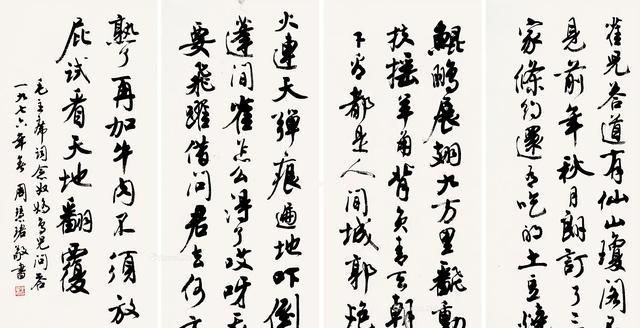 雀兒答道有仙山瓊閣不
見前年秋月朗訂了三
家條約還有吃的土豆燒
鯤鵬展翅九万里翻動
扶搖羊角背負青天朝
下看都是人間城郭炮
火連天彈痕遍地吓倒
蓬間雀怎么得了哎呀我
要飛躍借問君去何方
熟了再加牛肉不須放
屁試看天地翻覆
毛主席詞念奴嬌鳥兒問答
一九七六年 周慧珺敬書